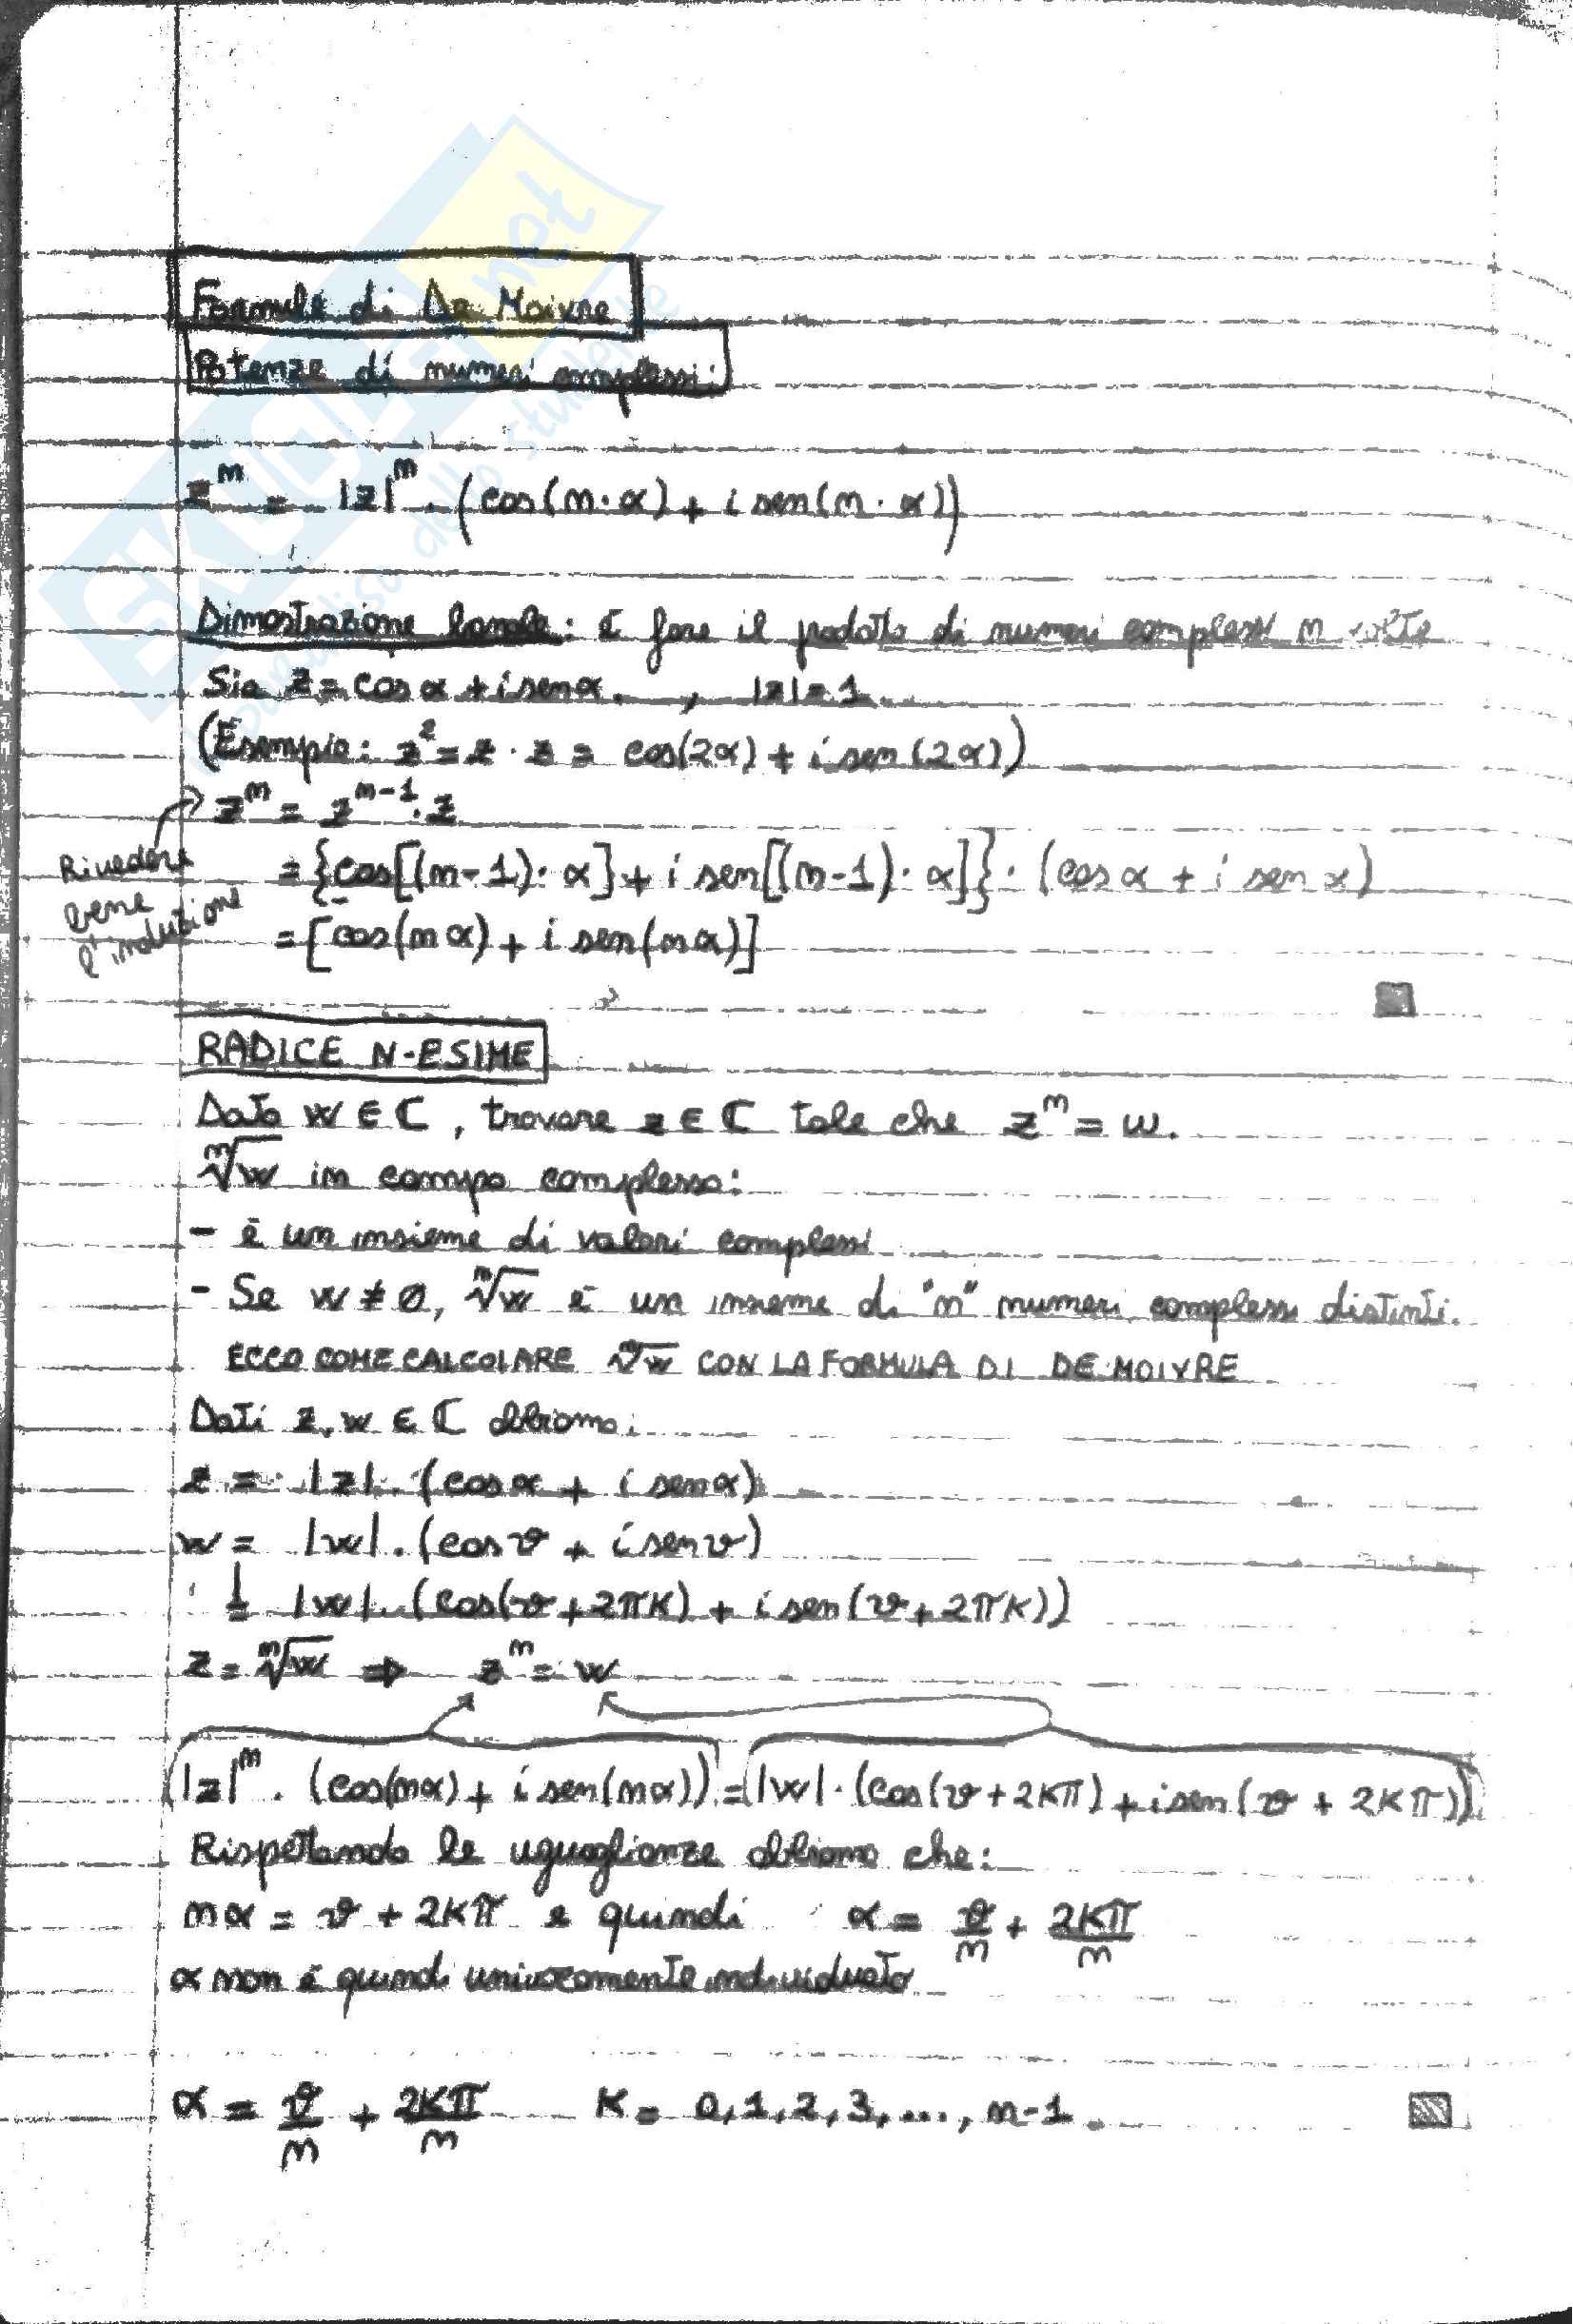 Formule di De Moivre
Potenze di numeri complessi:
z^n = |z|^n · (cos(n·α) + i sen(n·α))
Dimostrazione banale: è fare il prodotto di numeri complessi n volte
Sia z = cos α + i sen α , |z| = 1
(Esempio: z^2 = z · z = cos(2α) + i sen(2α))
z^n = z^(n-1) · z
Rivedere bene l'induzione
= {cos[(n-1)·α] + i sen[(n-1)·α]} · (cos α + i sen α)
= [cos(nα) + i sen(nα)]
RADICE N-ESIME
Dato w ∈ ℂ, trovare z ∈ ℂ tale che z^n = w.
ⁿ√w in campo complesso:
- è un insieme di valori complessi
- Se w ≠ 0, ⁿ√w è un insieme di "n" numeri complessi distinti.
ECCO COME CALCOLARE ⁿ√w CON LA FORMULA DI DE MOIVRE
Dati z, w ∈ ℂ abbiamo:
z = |z| · (cos α + i sen α)
w = |w| · (cos ϑ + i sen ϑ)
= |w| · (cos(ϑ + 2πK) + i sen(ϑ + 2πK))
z = ⁿ√w ⇒ z^n = w
|z|^n · (cos(nα) + i sen(nα)) = |w| · (cos(ϑ + 2Kπ) + i sen(ϑ + 2Kπ))
Rispettando le uguaglianze abbiamo che:
nα = ϑ + 2Kπ e quindi α = ϑ/n + 2Kπ/n
α non è quindi univocamente individuato
α = ϑ/n + 2Kπ/n K = 0, 1, 2, 3, ..., n-1.
SKUOLA.net